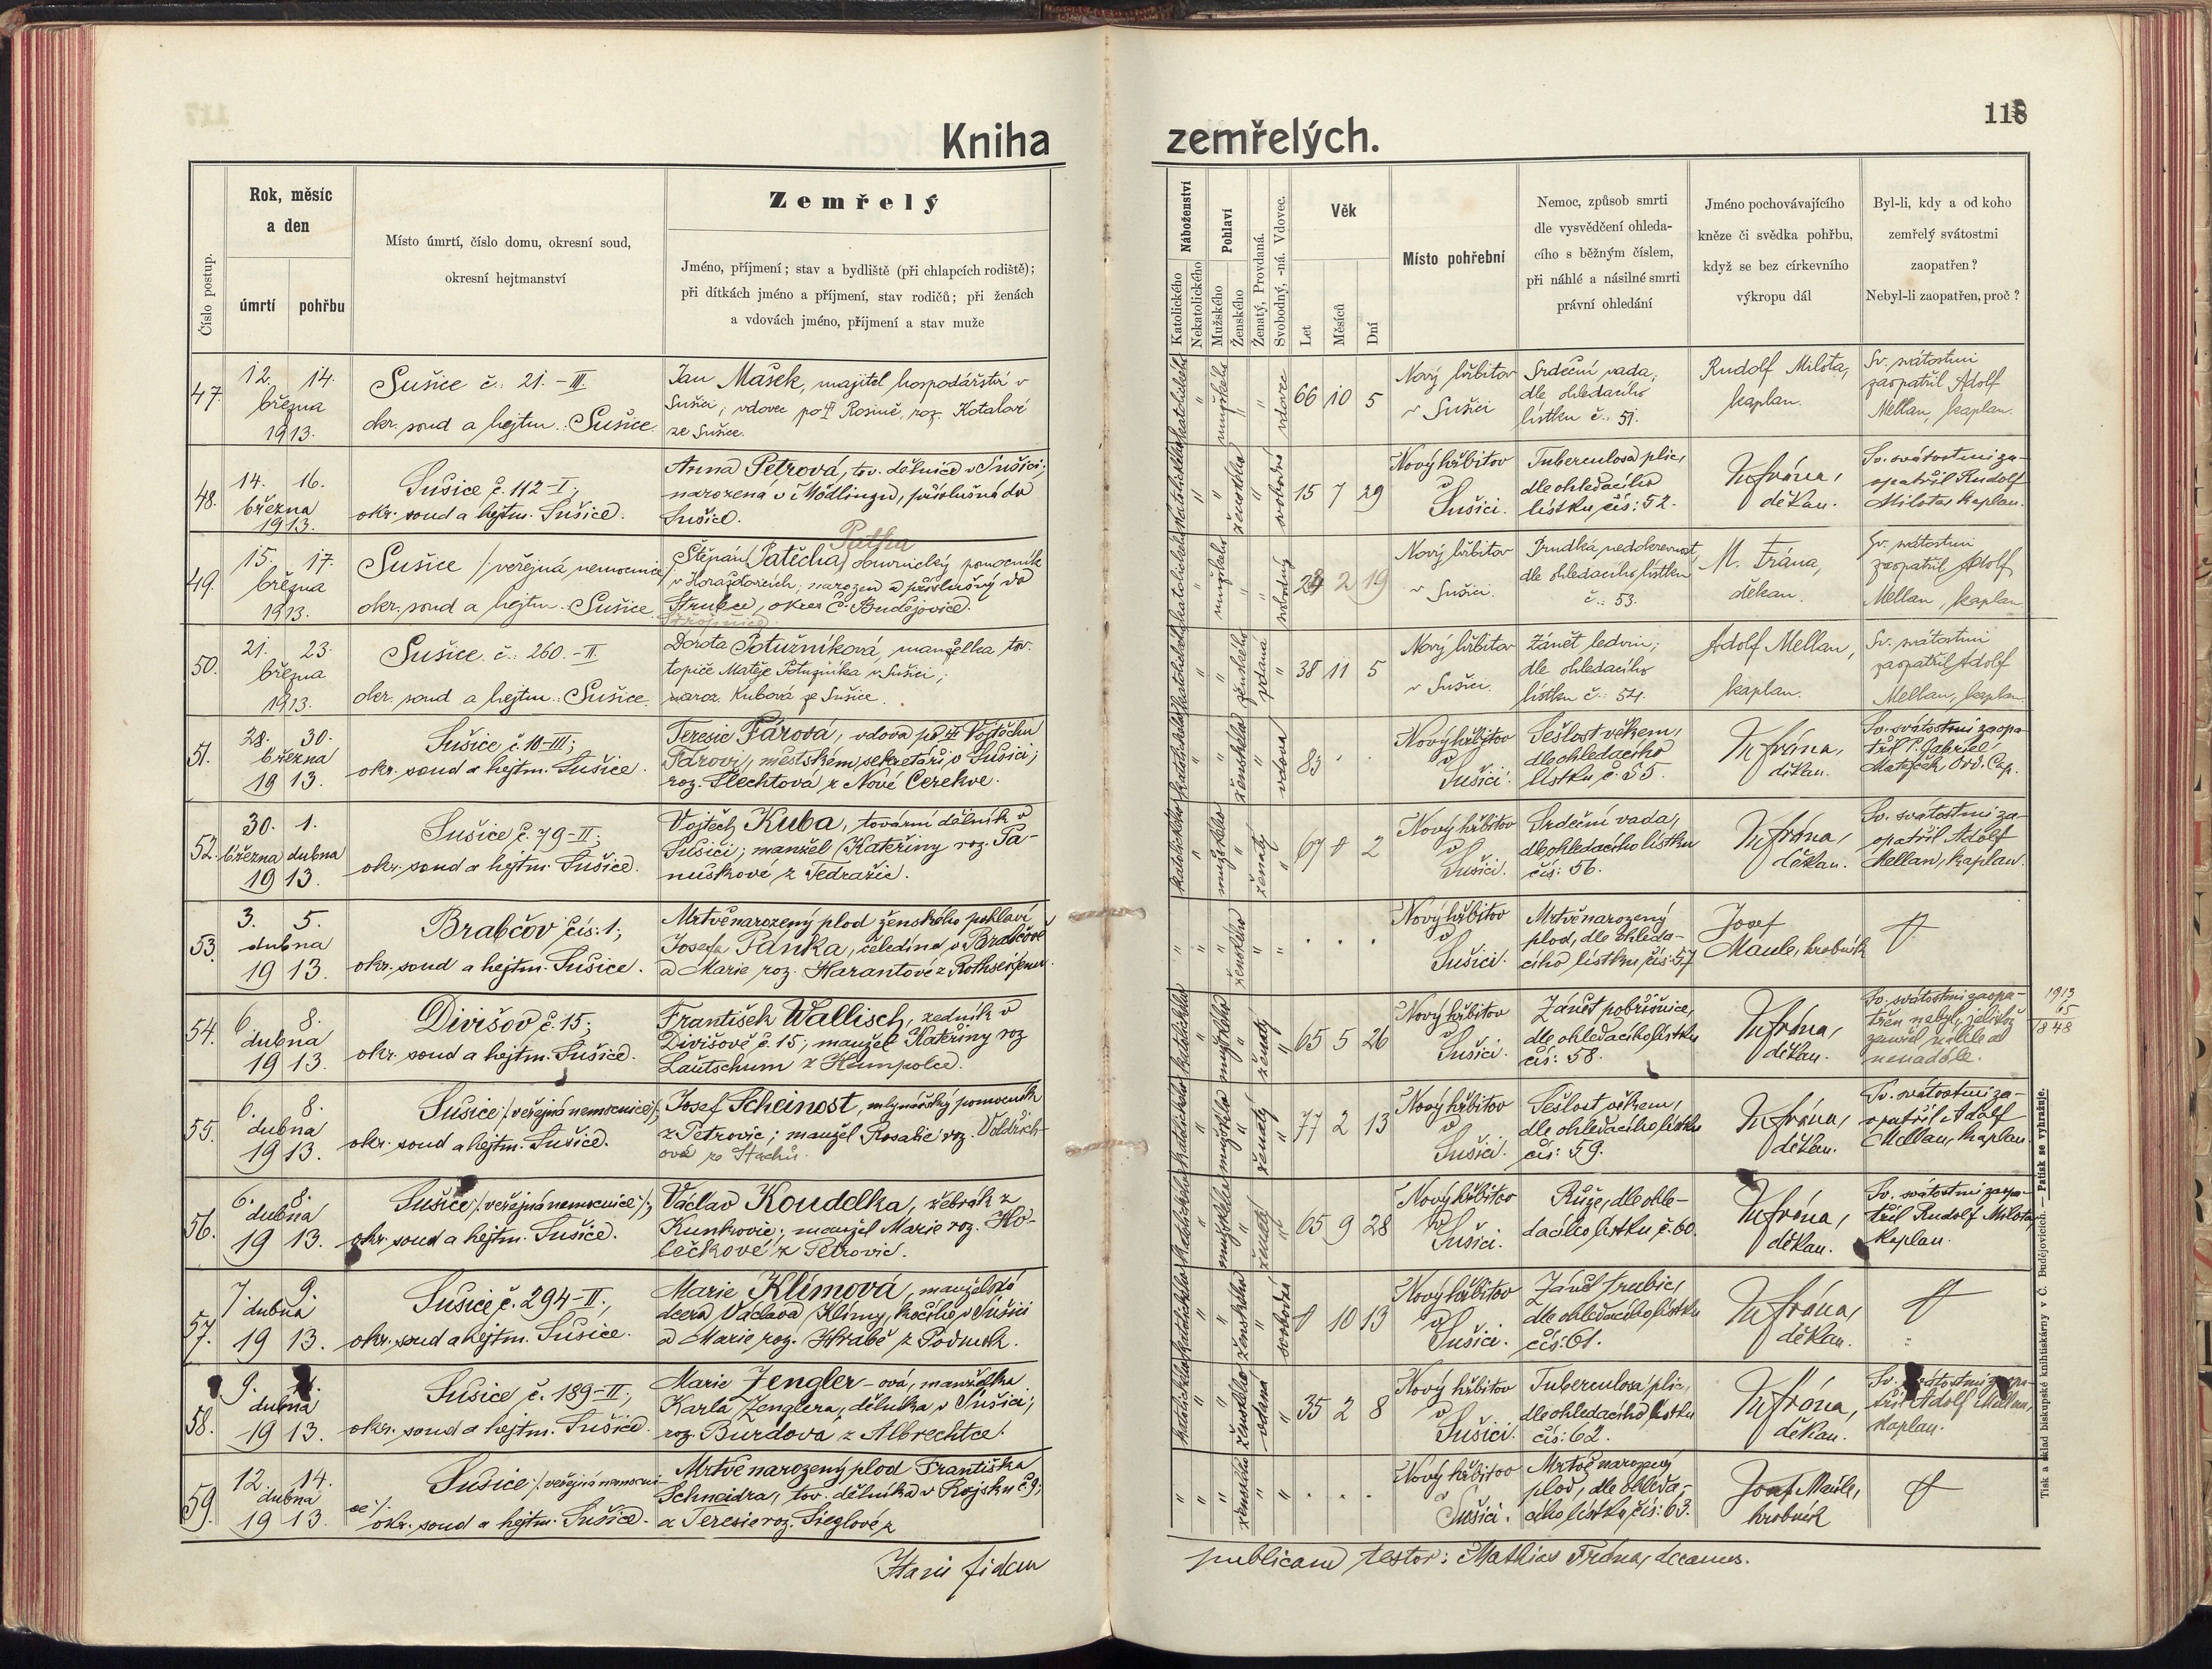 118
Kniha zemřelých.
Číslo postup.
Rok, měsíc
a den
úmrtí
pohřbu
Místo úmrtí, číslo domu, okresní soud,
okresní hejtmanství
Zemřelý
Jméno, příjmení; stav a bydliště (při chlapcích rodiště);
při dítkách jméno a příjmení, stav rodičů; při ženách
a vdovách jméno, příjmení a stav muže
Náboženství
Katolického
Nekatolického
Pohlaví
Mužského
Ženského
Ženatý, Provdaná.
Svobodný, -ná. Vdovec.
Věk
Let
Měsíců
Dní
Místo pohřební
Nemoc, způsob smrti
dle vysvědčení ohleda-
cího s běžným číslem,
při náhlé a násilné smrti
právní ohledání
Jméno pochovávajícího
kněze či svědka pohřbu,
když se bez církevního
výkropu dál
Byl-li, kdy a od koho
zemřelý svátostmi
zaopatřen?
Nebyl-li zaopatřen, proč?
47.
12. 14.
března
1913.
Sušice č.: 21.-III.
okr. soud a hejtm.: Sušice.
Jan Mašek, majitel hospodářství v
Sušici, vdovec po † Rosině, roz. Kotalové
ze Sušice.
katolického
mužského
vdovec
66 10 5
Nový hřbitov
v Sušici
Srdeční vada,
dle ohledacího
lístku č.: 51.
Rudolf Milota,
kaplan.
Sv. svátostmi
zaopatřil Adolf
Mellan, kaplan.
48.
14. 16.
března
1913.
Sušice č. 112-I;
okr. soud a hejtm. Sušice.
Anna Petrová, tov. dělnice v Sušici,
narozená v Mödlingu, příslušná do
Sušice.
katolického
ženského
svobodná
15 7 29
Nový hřbitov
v
Sušici.
Tuberculosa plic,
dle ohledacího
lístku čís: 52.
M. Frána,
děkan.
Sv. svátostmi za-
opatřil Rudolf
Milota, kaplan.
49.
15. 17.
března
1913.
Sušice /:veřejná nemocnice
okr. soud a hejtm.: Sušice.
Štěpán Patěcha, obuvnický pomocník
v Horažďovicích, narozen a příslušný do
okres Č. Budějovice.
katolického
mužského
svobodný
2 19
Nový hřbitov
v Sušici.
Prudká nedokrevnost,
dle ohledacího lístku
č.: 53.
M. Frána,
děkan.
Sv. svátostmi
zaopatřil Adolf
Mellan, kaplan
50.
21. 23.
března
1913.
Sušice č.: 260.-II.
okr. soud a hejtm.: Sušice.
Dorota Potužníková, manželka tov.
topiče Matěje Potužníka v Sušici,
naroz. Kubová ze Sušice.
katolického
ženského
vdaná
38 11 5
Nový hřbitov
v Sušici.
Zánět ledvin,
dle ohledacího
lístku č.: 54.
Adolf Mellan,
kaplan.
Sv. svátostmi
zaopatřil Adolf
Mellan, kaplan.
51.
28. 30.
března
1913.
Sušice č. 10-III;
okr. soud a hejtm. Sušice.
Teresie Fárová, vdova po † Vojtěchu
Fárovi, městském sekretáři v Sušici;
roz. Šlechtová z Nové Cerekve.
katolického
ženského
vdova
83 . .
Nový hřbitov
v
Sušici.
Sešlost věkem,
dle ohledacího
lístku č. 55.
M. Frána,
děkan.
Sv. svátostmi zaopa-
třil P. Gabriel
Matějček, Ord. Cap.
52.
30. 1.
března dubna
1913.
Sušice č. 79-II;
okr. soud a hejtm. Sušice.
Vojtěch Kuba, tovární dělník v
Sušici; manžel Kateřiny roz. Pa-
nuškové z Tedražic.
katolického
mužského
ženatý
67 8 2
Nový hřbitov
v
Sušici.
Srdeční vada,
dle ohledacího lístku
čís: 56.
M. Frána,
děkan.
Sv. svátostmi za-
opatřil Adolf
Mellan, kaplan.
53.
3. 5.
dubna
1913.
Brabčov čís: 1;
okr. soud a hejtm. Sušice.
Mrtvěnarozený plod ženského pohlaví
Josefa Pánka, čeledína v Brabčově
a Marie roz. Harantové z
ženského
. . .
Nový hřbitov
v
Sušici.
Mrtvěnarozený
plod, dle ohleda-
cího lístku čís: 57
Josef
Maule, hrobník
54.
6. 8.
dubna
1913.
Divišov č. 15;
okr. soud a hejtm. Sušice.
František Wallisch, zedník v
Divišově č. 15; manžel Kateřiny roz
Lautschum z
katolického
mužského
ženatý
65 5 26
Nový hřbitov
v
Sušici.
Zánět pobřišnice,
dle ohledacího lístku
čís: 58.
M. Frána,
děkan.
Sv. svátostmi zaopa-
třen nebyl, jelikož
zemřel náhle a
nenadále.
1913
65
1848
55.
6. 8.
dubna
1913.
Sušice /:veřejná nemocnice:/;
okr. soud a hejtm. Sušice.
Josef Scheinost, mlynářský pomocník
z Petrovic; manžel Rosalie roz. Voldřich-
ové ze Stachů.
katolického
mužského
ženatý
77 2 13
Nový hřbitov
v
Sušici.
Sešlost věkem,
dle ohledacího lístku
čís: 59.
M. Frána,
děkan.
Sv. svátostmi za-
opatřil Adolf
Mellan, kaplan
56.
6. 8.
dubna
1913.
Sušice /:veřejná nemocnice:/;
okr. soud a hejtm. Sušice.
Václav Koudelka, žebrák z
Kunkovic; manžel Marie roz. Ho-
lečkové z Petrovic.
katolického
mužského
ženatý
65 9 28
Nový hřbitov
v
Sušici.
Růže, dle ohle-
dacího lístku č. 60.
M. Frána,
děkan.
Sv. svátostmi zaopa-
třil Rudolf Milota,
kaplan.
57.
7. 9.
dubna
1913.
Sušice č. 294-II,
okr. soud a hejtm. Sušice.
Marie Klímová, manželská
dcera Václava Klímy, kočího v Sušici
a Marie roz. Hrabě z
katolického
ženského
svobodná
8 10 13
Nový hřbitov
v
Sušici.
Zánět trubic,
dle ohledacího lístku
čís: 61.
M. Frána,
děkan.
58.
9.
dubna
1913.
Sušice č. 189-II;
okr. soud a hejtm. Sušice.
Marie Zengler-ová, manželka
Karla Zenglera, dělníka v Sušici;
roz. Burdová z Albrechtce.
katolického
ženského
vdaná
35 2 8
Nový hřbitov
v
Sušici.
Tuberculosa plic,
dle ohledacího lístku
čís: 62.
M. Frána,
děkan.
Sv. svátostmi zaopa-
třil Adolf Mellan,
kaplan.
59.
12. 14.
dubna
1913.
Sušice /:veřejná nemocni-
ce:/
okr. soud a hejtm. Sušice.
Mrtvě narozený plod Františka
Schneidra, tov. dělníka v Rojsku č 9;
a Teresie roz. Sieglové z
ženského
. . .
Nový hřbitov
v
Sušici.
Mrtvě narozený
plod, dle ohleda-
cího lístku čís: 63.
Josef Maule,
hrobník
fidem publicam testor: Mathias Frána, decanus.
Tisk a sklad biskupské knihtiskárny v Č. Budějovicích. — Patisk se vyhražuje.